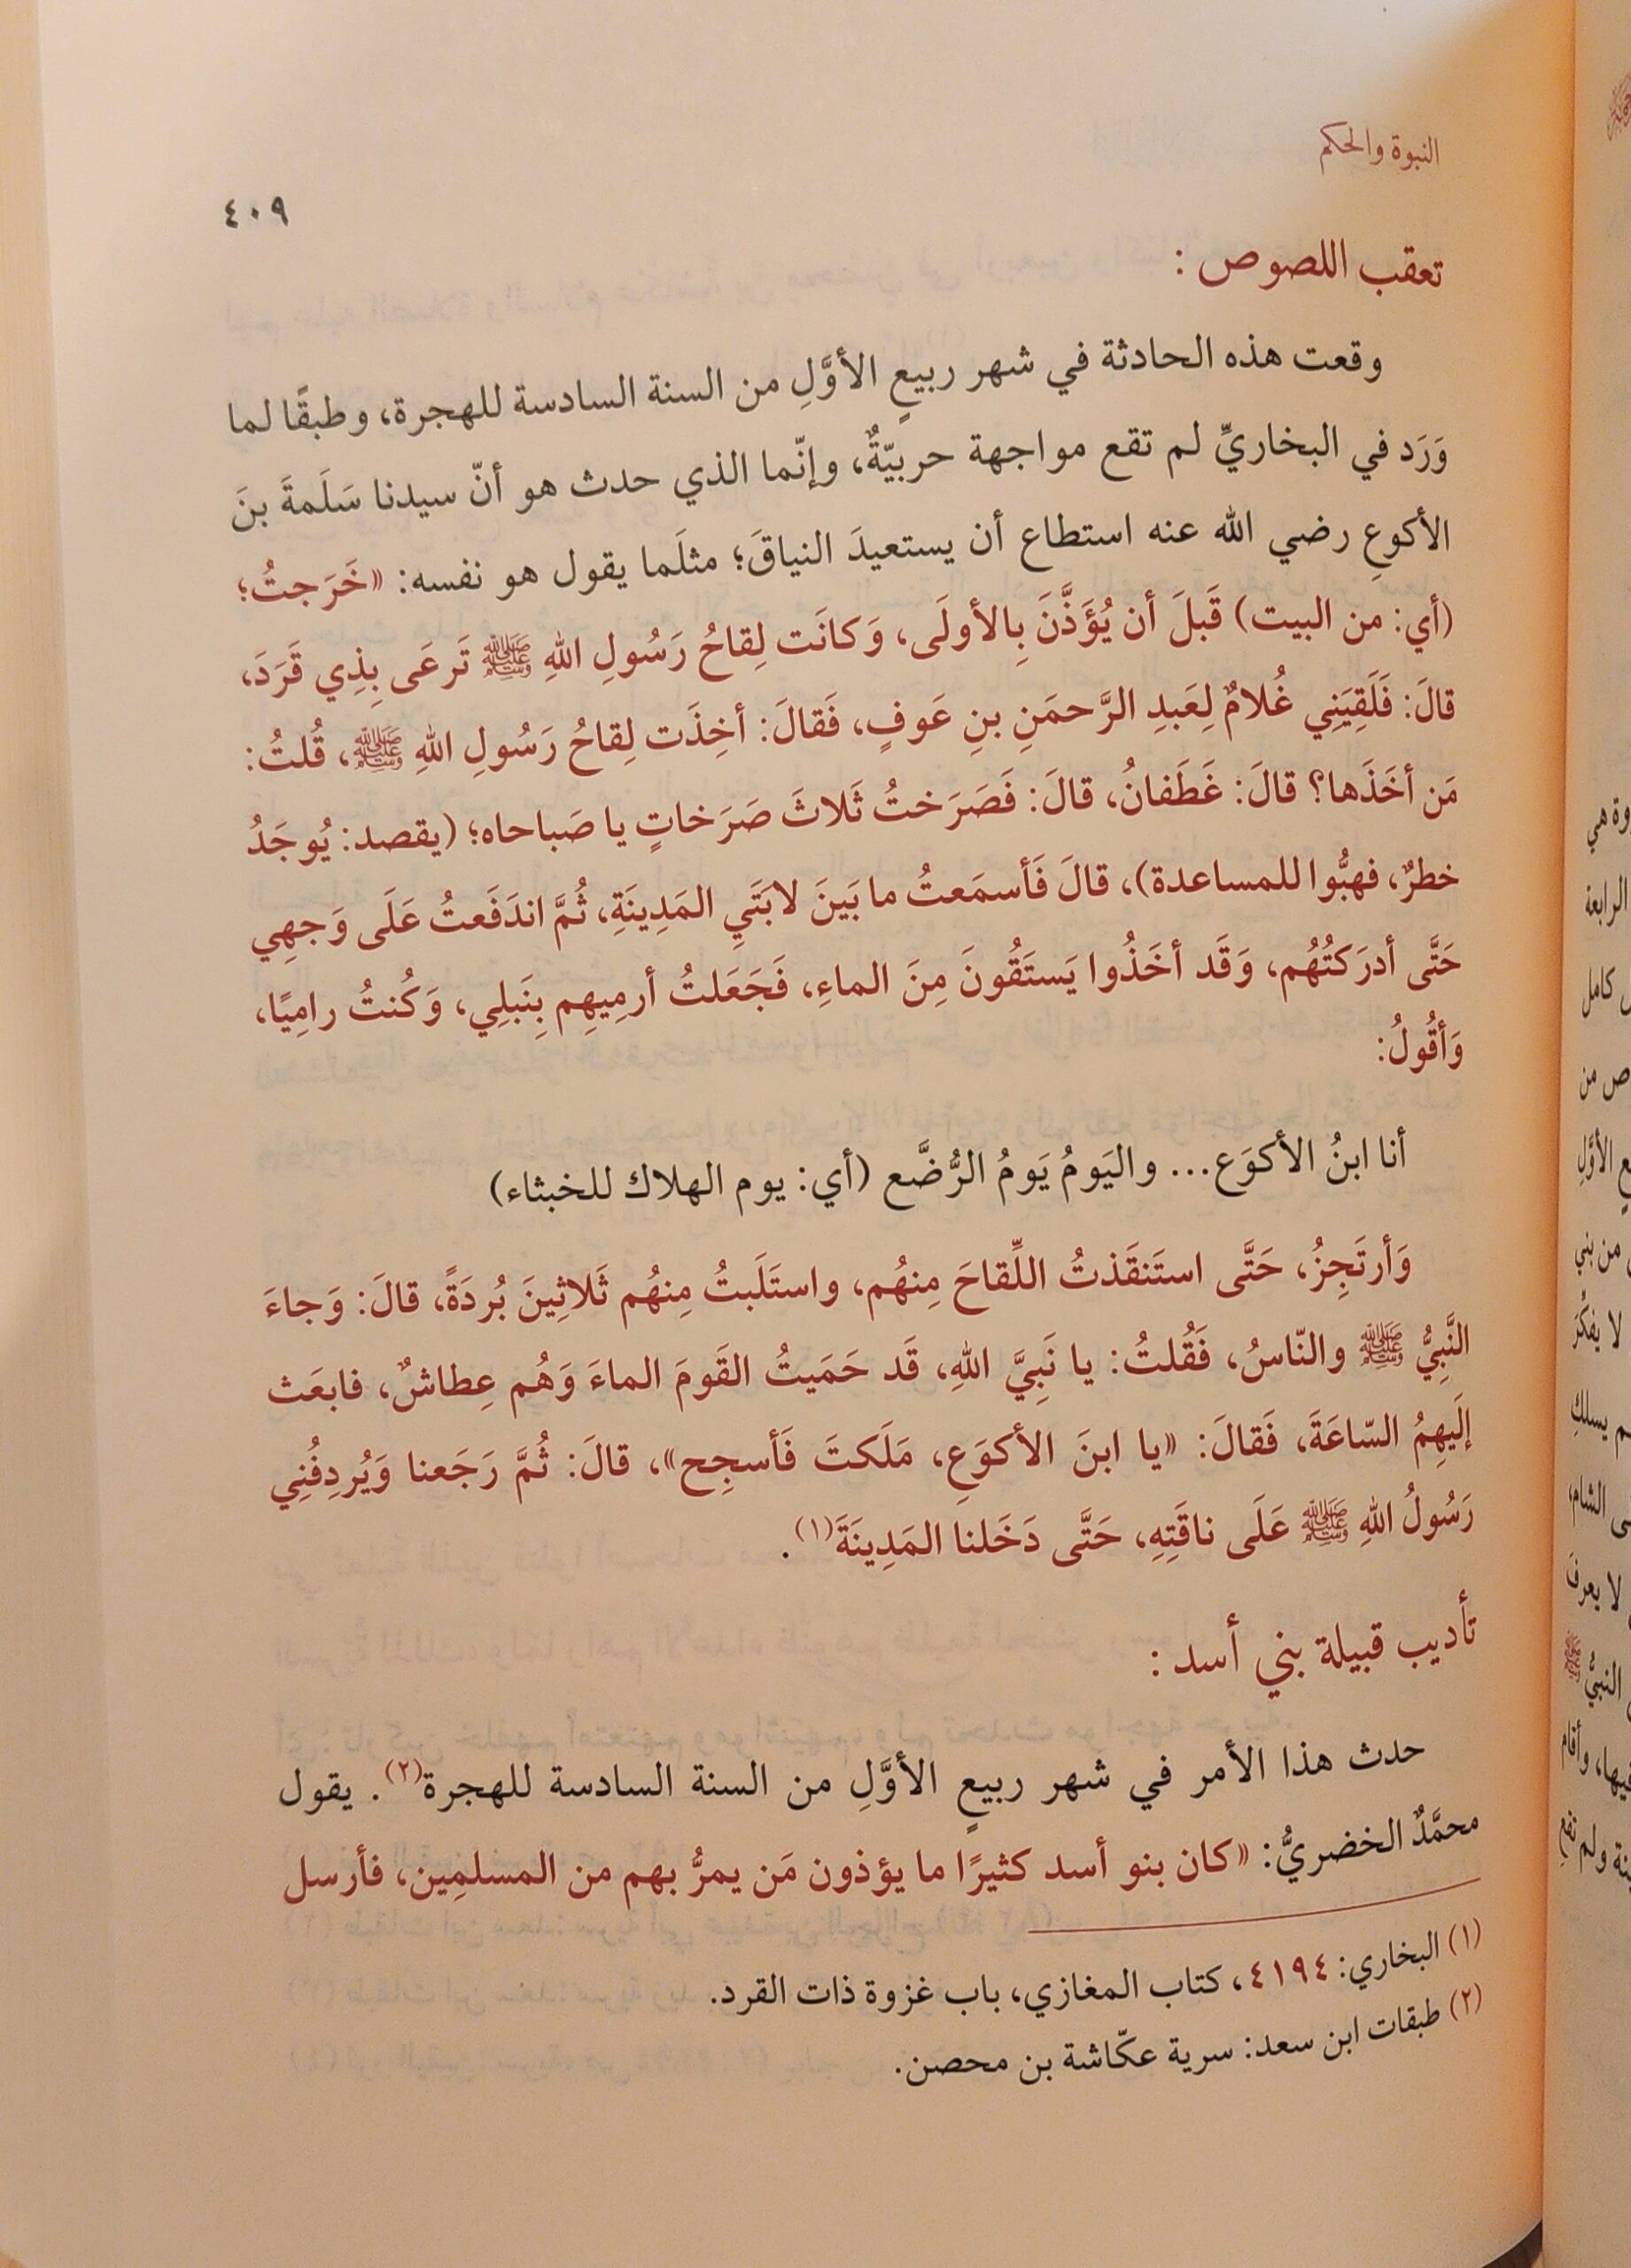 النبوة والحكم
٤٠٩
تعقب اللصوص :
وقعت هذه الحادثة في شهر ربيعٍ الأوَّلِ من السنة السادسة للهجرة، وطبقًا لما
وَرَد في البخاريِّ لم تقع مواجهة حربيّةٌ، وإنّما الذي حدث هو أنّ سيدنا سَلَمةَ بنَ
الأكوعِ رضي الله عنه استطاع أن يستعيدَ النياقَ؛ مثلَما يقول هو نفسه: «خَرَجتُ؛
(أي: من البيت) قَبلَ أن يُؤَذَّنَ بِالأولَى، وَكانَت لِقاحُ رَسُولِ اللهِ ﷺ تَرعَى بِذِي قَرَدَ،
قالَ: فَلَقِيَنِي غُلامٌ لِعَبدِ الرَّحمَنِ بنِ عَوفٍ، فَقالَ: أخِذَت لِقاحُ رَسُولِ اللهِ ﷺ، قُلتُ:
مَن أخَذَها؟ قالَ: غَطَفانُ، قالَ: فَصَرَختُ ثَلاثَ صَرَخاتٍ يا صَباحاه؛ (يقصد: يُوجَدُ
خطرٌ، فهبُّوا للمساعدة)، قالَ فَأسمَعتُ ما بَينَ لابَتَيِ المَدِينَةِ، ثُمَّ اندَفَعتُ عَلَى وَجهِي
حَتَّى أدرَكتُهُم، وَقَد أخَذُوا يَستَقُونَ مِنَ الماءِ، فَجَعَلتُ أرمِيهِم بِنَبلِي، وَكُنتُ رامِيًا،
وَأقُولُ:
أنا ابنُ الأكوَع... واليَومُ يَومُ الرُّضَّع (أي: يوم الهلاك للخبثاء)
وَأرتَجِزُ، حَتَّى استَنقَذتُ اللِّقاحَ مِنهُم، واستَلَبتُ مِنهُم ثَلاثِينَ بُردَةً، قالَ: وَجاءَ
النَّبِيُّ ﷺ والنّاسُ، فَقُلتُ: يا نَبِيَّ اللهِ، قَد حَمَيتُ القَومَ الماءَ وَهُم عِطاشٌ، فابعَث
إلَيهِمُ السّاعَةَ، فَقالَ: «يا ابنَ الأكوَعِ، مَلَكتَ فَأسجِح»، قالَ: ثُمَّ رَجَعنا وَيُردِفُنِي
رَسُولُ اللهِ ﷺ عَلَى ناقَتِهِ، حَتَّى دَخَلنا المَدِينَةَ(١).
تأديب قبيلة بني أسد :
حدث هذا الأمر في شهر ربيعٍ الأوَّلِ من السنة السادسة للهجرة(٢). يقول
محمَّدٌ الخضريُّ: «كان بنو أسد كثيرًا ما يؤذون مَن يمرُّ بهم من المسلمِين، فأرسل
(١) البخاري: ٤١٩٤، كتاب المغازي، باب غزوة ذات القرد.
(٢) طبقات ابن سعد: سرية عكّاشة بن محصن.
الرابعة
كامل
من
الأوَّلِ
من بني
لا يفكّر
الشام،
لا يعرف
النبيُّ ﷺ
وأقام
ولم تقع